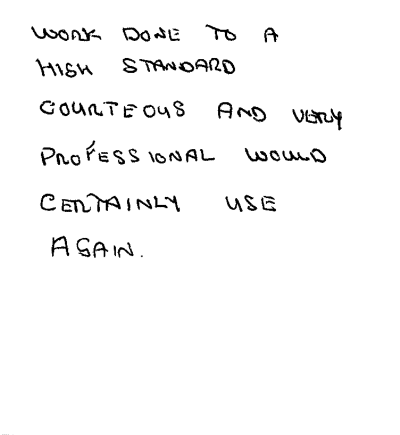 WORK DONE TO A
HIGH STANDARD
COURTEOUS AND VERY
PROFESSIONAL WOULD
CERTAINLY USE
AGAIN.